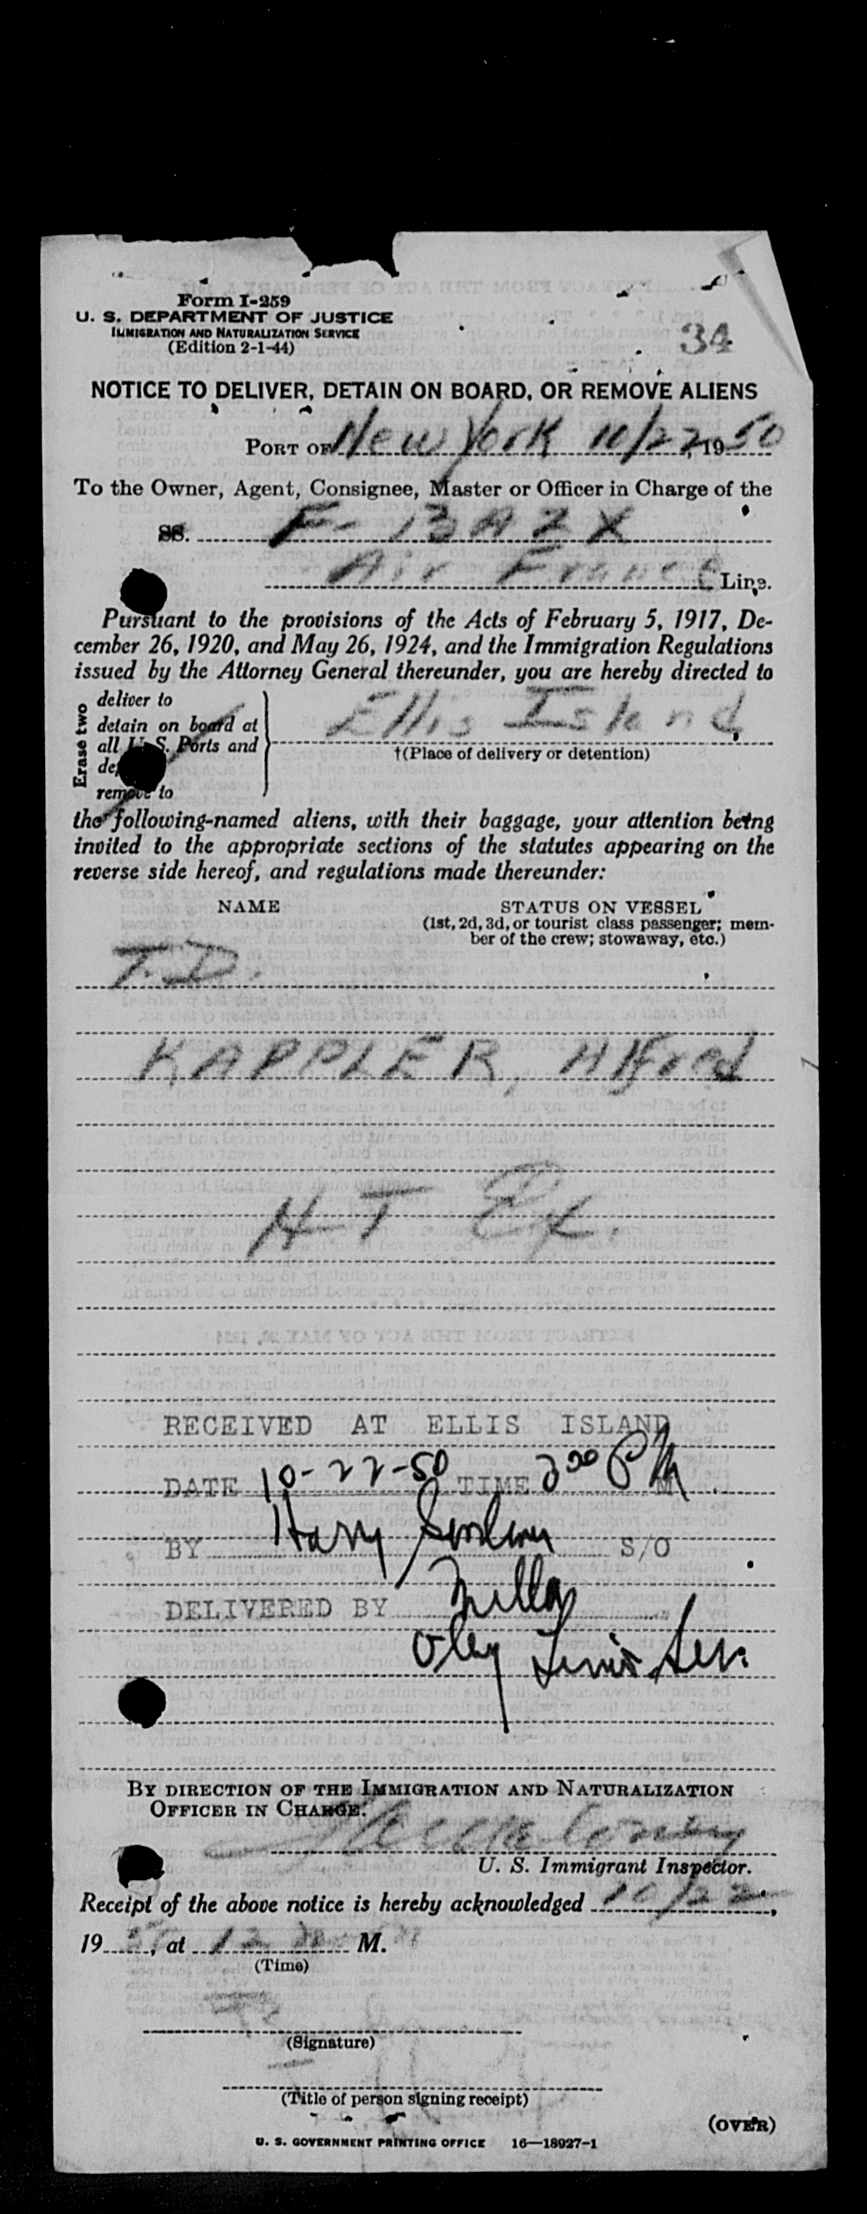 Form I-259
U. S. DEPARTMENT OF JUSTICE
IMMIGRATION AND NATURALIZATION SERVICE
(Edition 2-1-44)
34
NOTICE TO DELIVER, DETAIN ON BOARD, OR REMOVE ALIENS
PORT OF New York 10/22, 1950
To the Owner, Agent, Consignee, Master or Officer in Charge of the
SS. F-BAZX
Air France Line.
Pursuant to the provisions of the Acts of February 5, 1917, De-
cember 26, 1920, and May 26, 1924, and the Immigration Regulations
issued by the Attorney General thereunder, you are hereby directed to
Erase two
deliver to
detain on board at
all U. S. Ports and
remove to
Ellis Island
†(Place of delivery or detention)
the following-named aliens, with their baggage, your attention being
invited to the appropriate sections of the statutes appearing on the
reverse side hereof, and regulations made thereunder:
NAME
STATUS ON VESSEL
(1st, 2d, 3d, or tourist class passenger; mem-
ber of the crew; stowaway, etc.)
T.D.
KAPPLER, Alfred
HT Ex.
RECEIVED AT ELLIS ISLAND
DATE 10-22-50 TIME PM M.
BY Harry S/O
DELIVERED BY
BY DIRECTION OF THE IMMIGRATION AND NATURALIZATION
OFFICER IN CHARGE:
U. S. Immigrant Inspector.
Receipt of the above notice is hereby acknowledged 10/22,
19 50, at 12 M.
(Time)
(Signature)
(Title of person signing receipt)
(OVER)
U. S. GOVERNMENT PRINTING OFFICE 16—18927-1